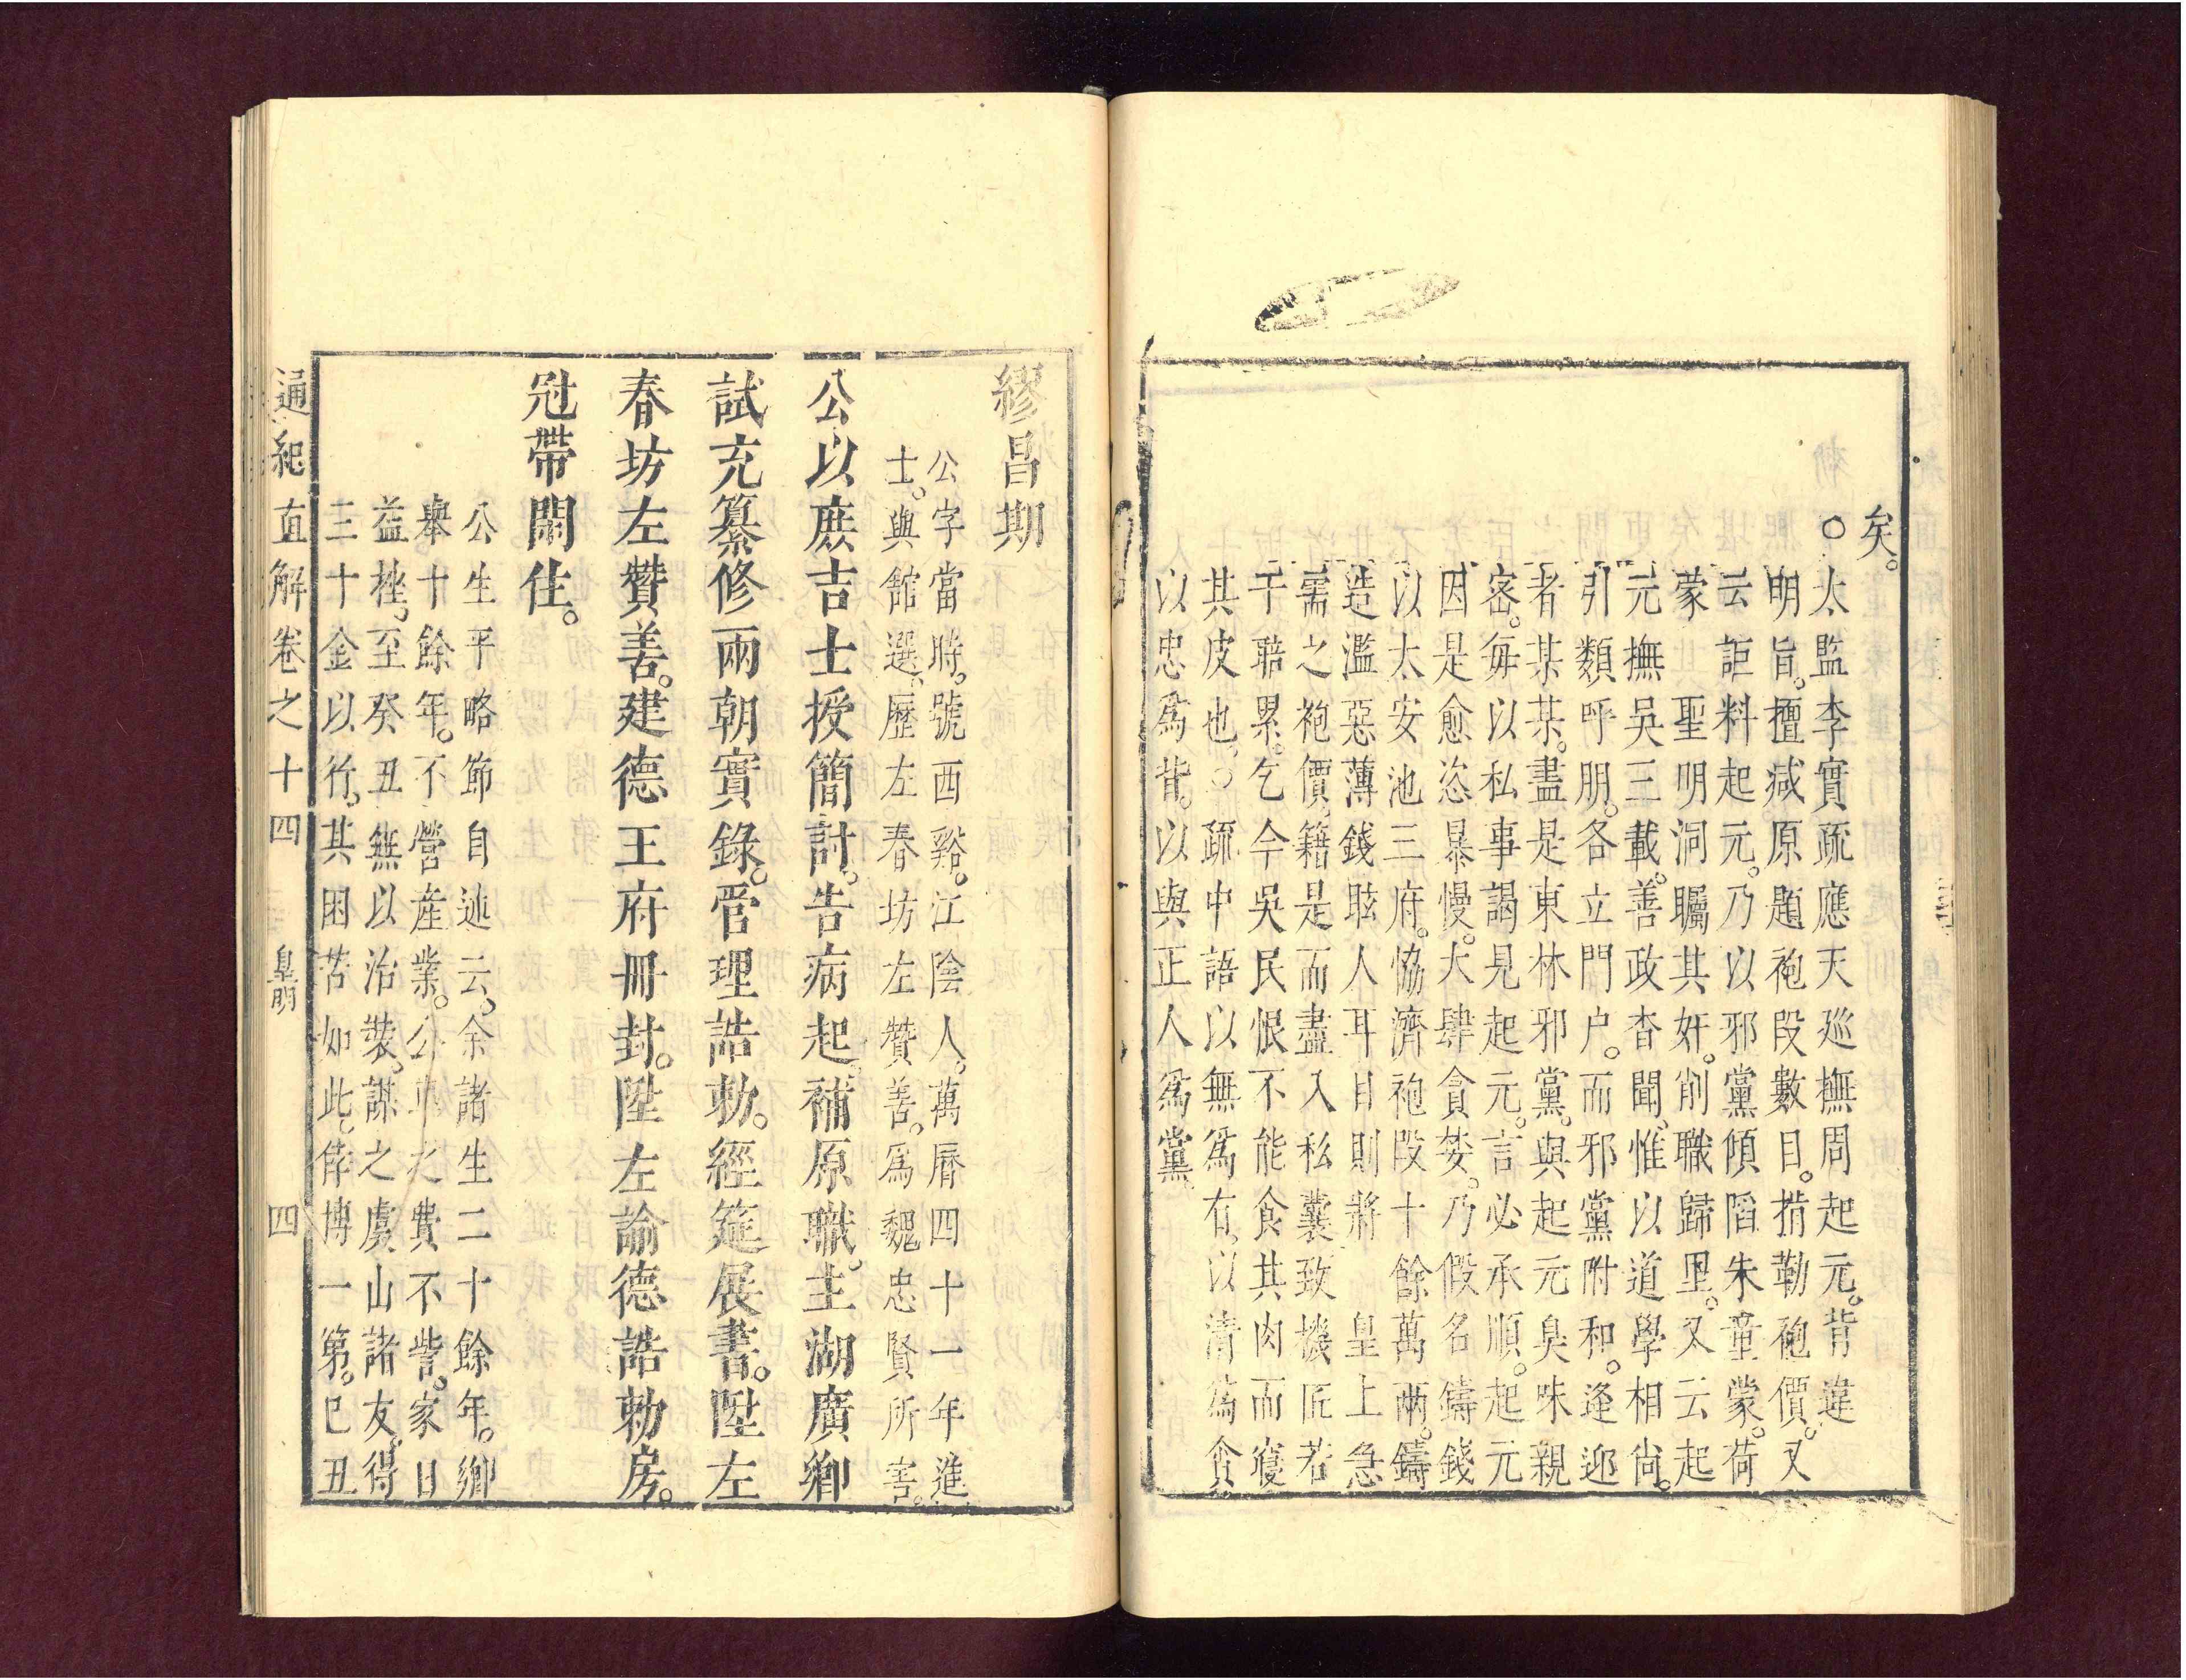 矣。
○太監李實疏應天巡撫周起元。背違
明旨。擅減原題袍段數目。措勒袍價。又
云詎料起元。乃以邪黨傾陷朱童蒙。荷
蒙　聖明洞矚其奸。削職歸里。又云起
元撫吳三載。善政杳聞。惟以道學相尚。
引類呼朋。各立門户。而邪黨附和。逢迎
者某某。盡是東林邪黨。與起元臭味親
密。每以私事謁見起元。言必承順。起元
因是愈恣暴慢。大肆貪婪。乃假名鑄錢
以太安池三府。恊濟袍段十餘萬兩。鑄
造濫惡薄錢眩人耳目則將　皇上急
需之袍價。籍是而盡入私囊致機匠若
干賠累。乞今吳民恨不能食其肉而寢
其皮也。○疏中語以無爲有。以清爲貪
以忠爲背。以與正人爲黨
繆昌期
公字當時。號西谿。江陰人。萬曆四十一年進
士。與舘選。歷左春坊左贊善。爲魏忠賢所害。
公以庶吉士授簡討。告病起。補原職。主湖廣鄉
試充纂修兩朝實錄。管理誥勅。經筵展書。陞左
春坊左贊善。建德王府冊封。陞左諭德誥勅房。
冠帶閑住。
公生平略節自述云。余諸生二十餘年。鄉
舉十餘年。不營産業。公車之費不訾。家日
益挫。至癸丑無以治裝。謀之虞山諸友。得
三十金以行。其困苦如此。倖博一第。已丑
通紀直解卷之十四　皇明　四